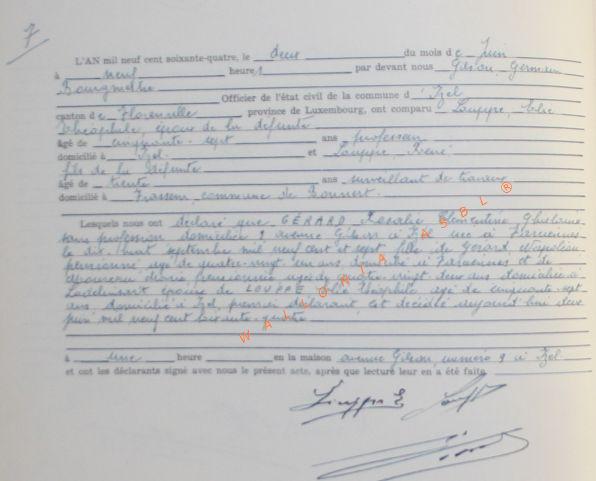 7
L'AN mil neuf cent soixante-quatre, le deux du mois de Juin
à neuf heures par devant nous Gilson, Germain
Bourgmestre
Officier de l'état civil de la commune d'Izel
canton de Florenville province de Luxembourg, ont comparu Louppe, Elie
Théophile, époux de la défunte
âgé de cinquante-sept ans professeur
domicilié à Izel et Louppe, René
fils de la défunte
âgé de trente ans surveillant de travaux
domicilié à Frassem, commune de Bonnert.
Lesquels nous ont déclaré que GÉRARD Rosalie Clémentine Ghislaine
sans profession domiciliée 9 avenue Gilson à Izel née à Farciennes
le dix-huit septembre mil neuf cent et sept fille de Gérard Napoléon
pensionné agé de quatre-vingt un ans domicilié à Farciennes et de
pensionnée agée de quatre-vingt deux ans domiciliée à
Lodelinsart épouse de LOUPPE Elie Théophile agé de cinquante-sept
ans domicilié à Izel, premier déclarant, est décédée aujourd'hui deux
juin mil neuf cent soixante-quatre
à une heure en la maison avenue Gilson, numéro 9 à Izel
et ont les déclarants signé avec nous le présent acte, après que lecture leur en a été faite.
Louppe E
WALLONIA ASBL ®